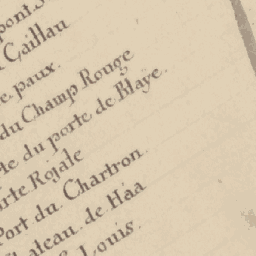 pont.S
Caillau
paux.
du Champ Rouge
du porte de Blaye.
Rojale
Port du Chartron.
de Haa
Louis.